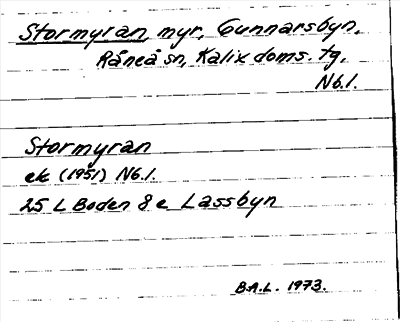 Stormyran, myr, Gunnarsbyn,
Råneå sn, Kalix doms. tg,
Nb.l.
Stormyran
ek (1951) Nb.l.
25 L Boden 8 e Lassbyn
B.A.L. 1973.